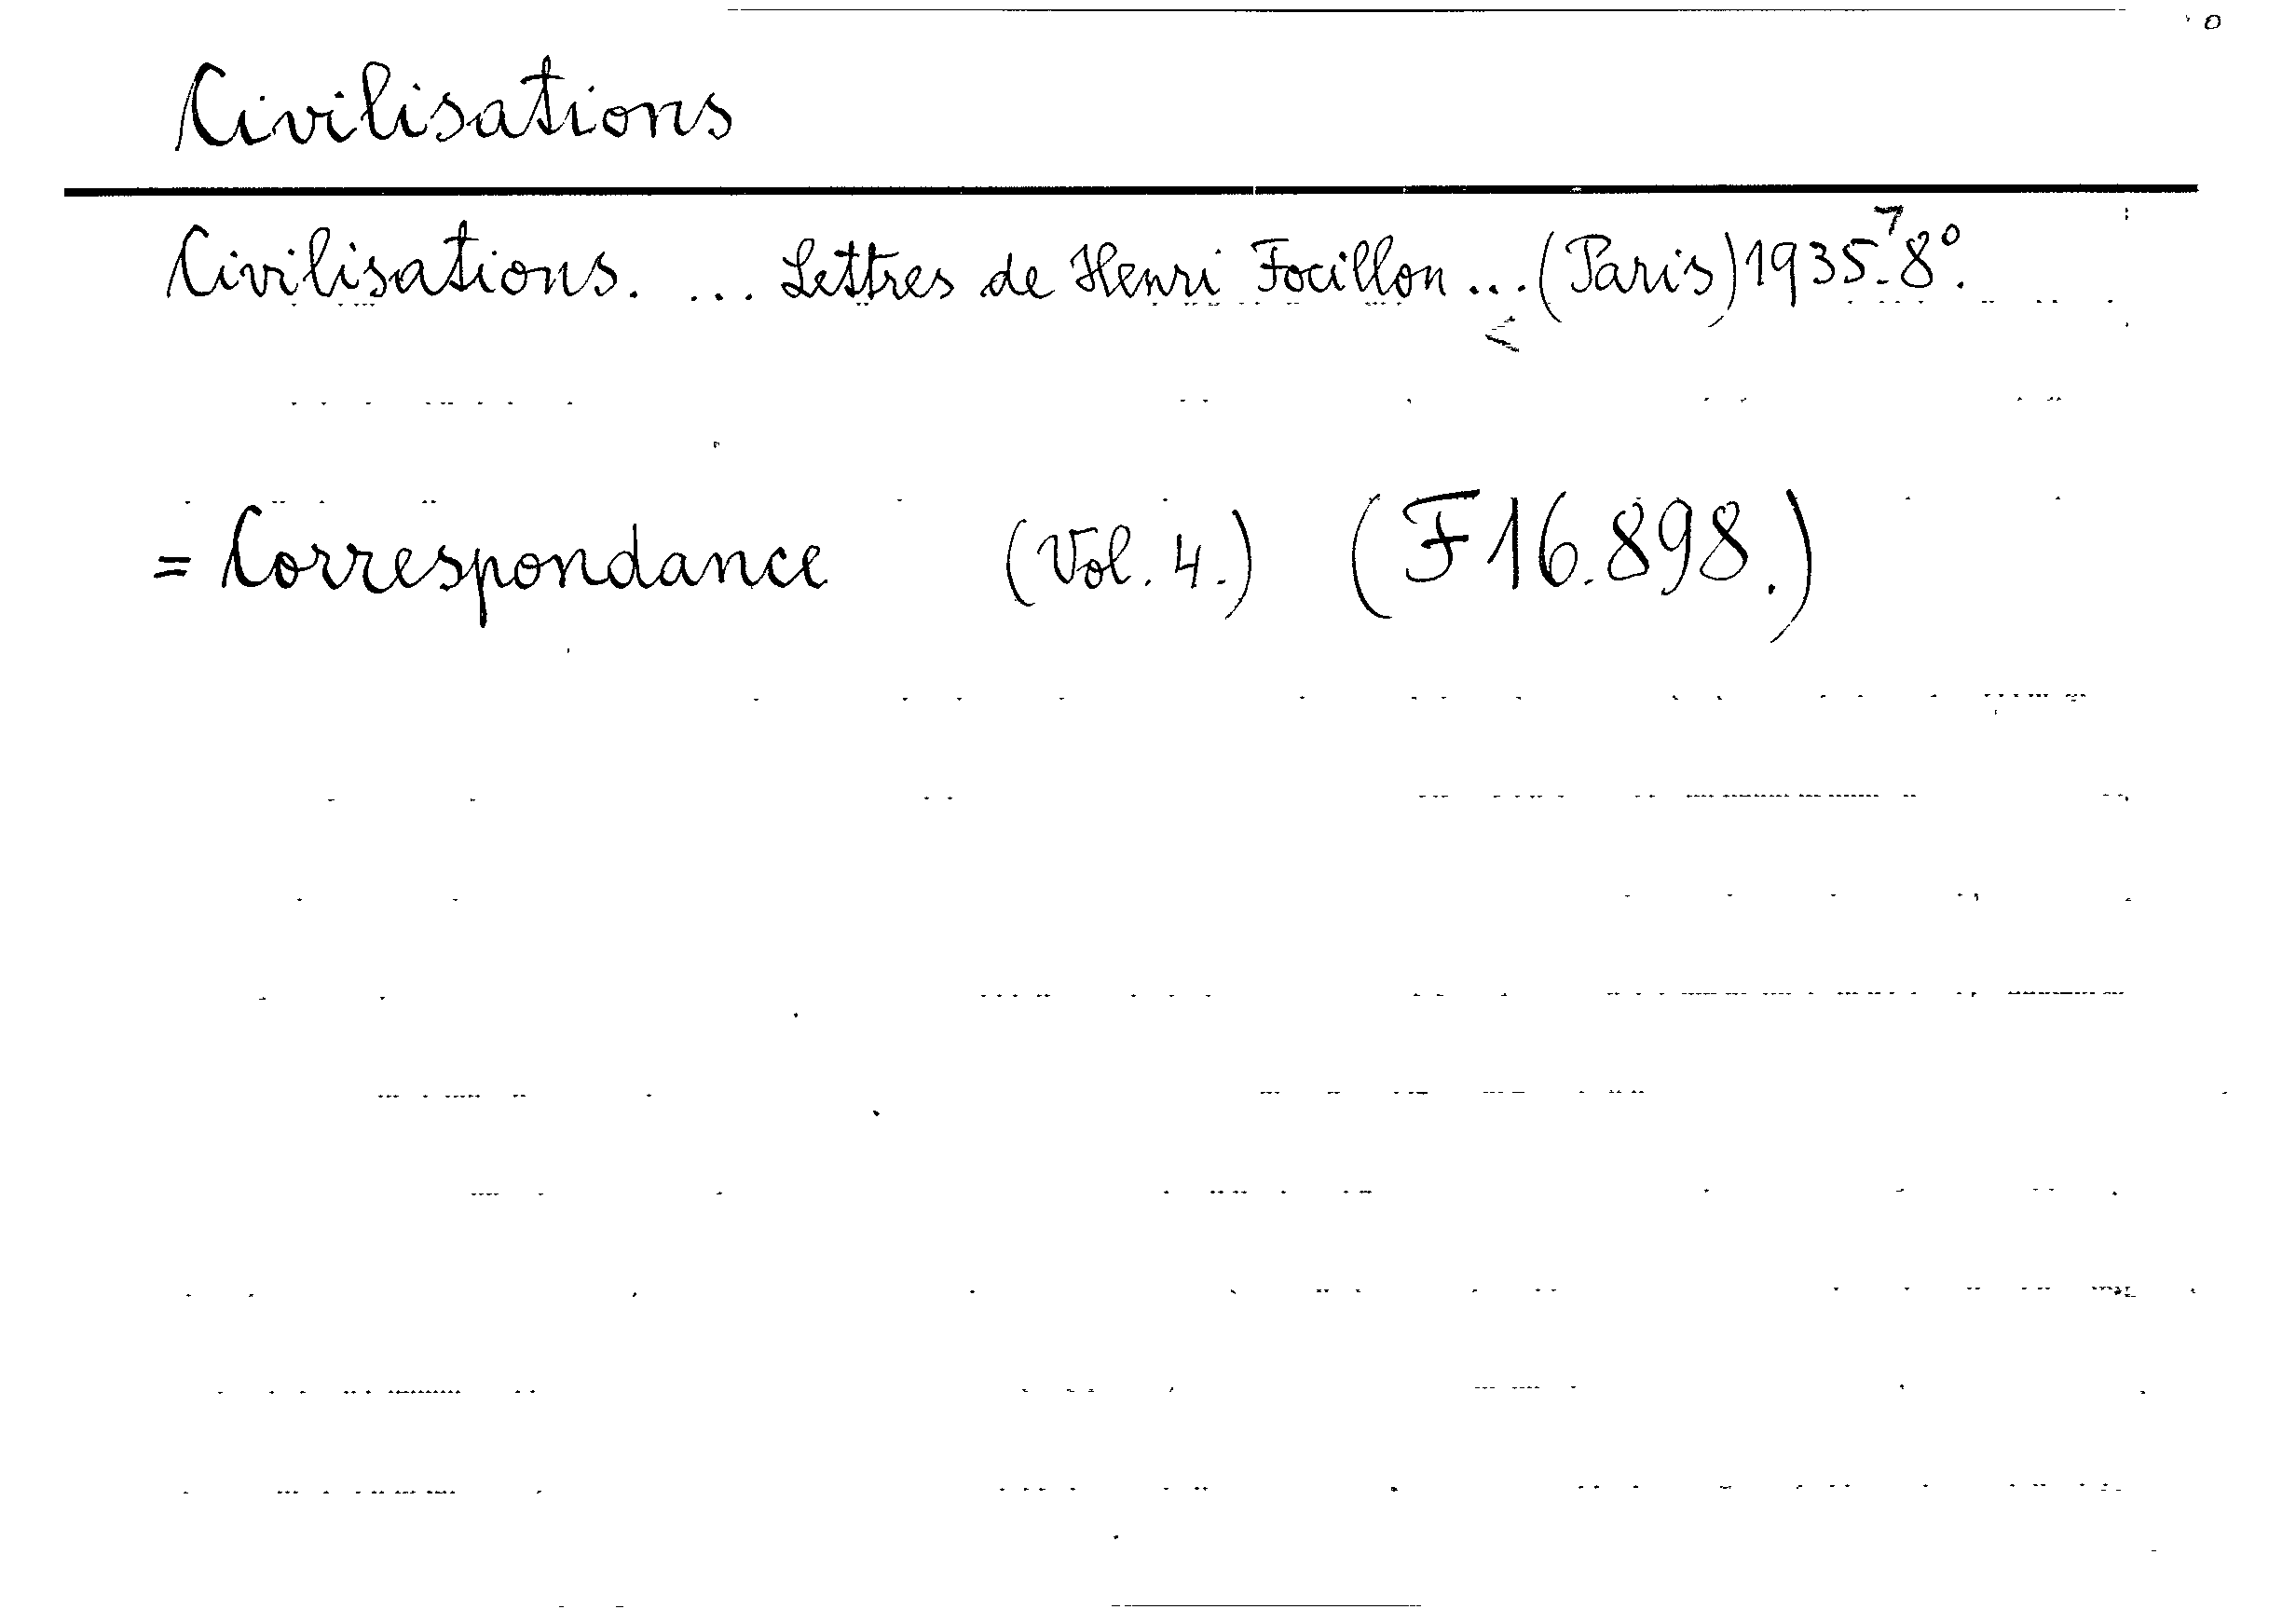 Civilisations
Civilisations. ... Lettres de Henri Focillon ... (Paris) 1935. 8°.
= Correspondance (Vol. 4.) (F 16.898.)